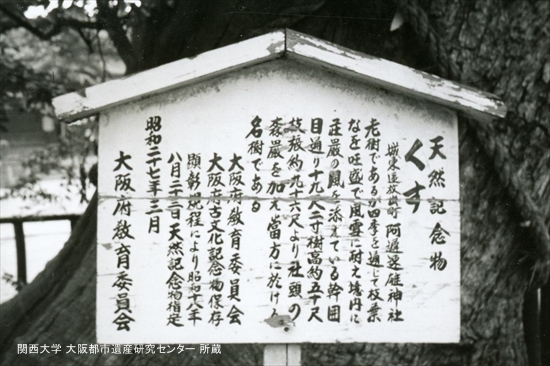 天然記念物
くす
城東区放出町 阿遅速雄神社
老樹であるが四季を通じて枝葉
なを旺盛で風雲に耐え境内に
荘厳の風を添えている幹囲
目通り十九尺二寸樹高約五十尺
枝張約九十八尺より社頭の
森厳を加え当方に於ける
名樹である
大阪府教育委員会
大阪府古文化記念物保存
顕彰規程により昭和十八年
八月二十三日天然記念物指定
昭和二十七年三月
大阪府教育委員会
関西大学 大阪都市遺産研究センター 所蔵